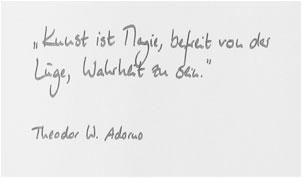 „Kunst ist Magie, befreit von der
Lüge, Wahrheit zu sein."
Theodor W. Adorno